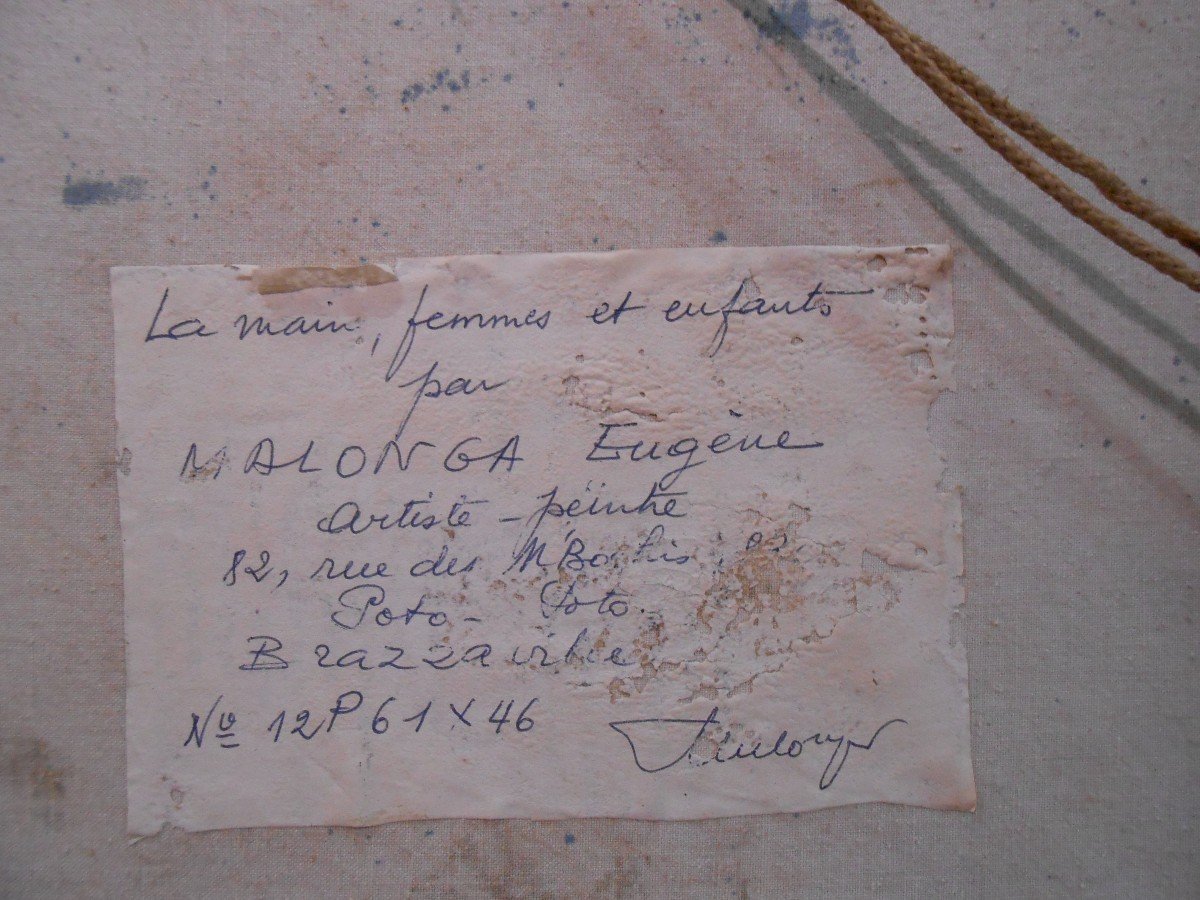 La main, femmes et enfants
par
MALONGA Eugène
Artiste - peintre
82, rue des M'Bochis
Poto - Poto
Brazzaville
Nº 12P 61 X 46